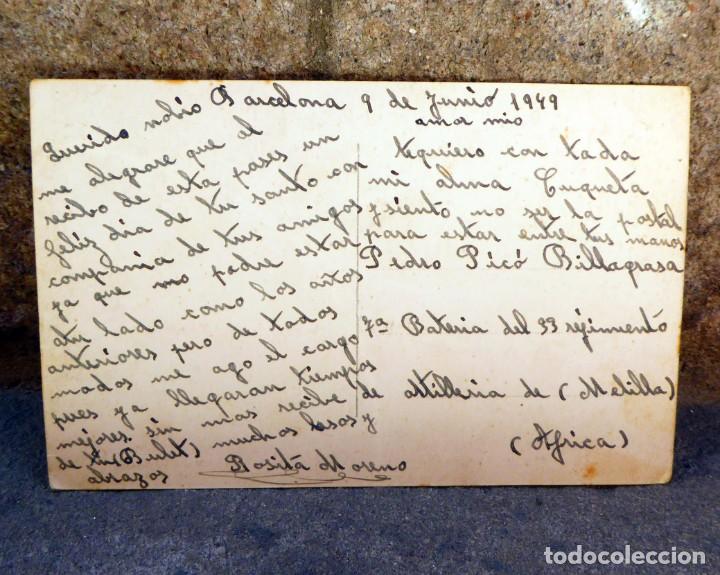 Barcelona 9 de Junio 1949
Querido nobio
me alegrare que al
recibo de esta pases un
feliz dia de tu santo con
compania de tus amigos
ya que mo podre estar
atu lado como los años
anteriores pero de todos
modos me ago el cargo
pues ya llegaran tiempos
mejores. sin mas recibe
de tu muchos besos y
abrazos
Rosita Moreno
amor mio
tequiero con toda
mi alma
ysiento no ser la postal
para estar entre tus manos
Pedro Picó Billagrasa
7a Bateria del 33 rejimiento
de Artilleria de (Melilla)
(Africa)
todocoleccion.net